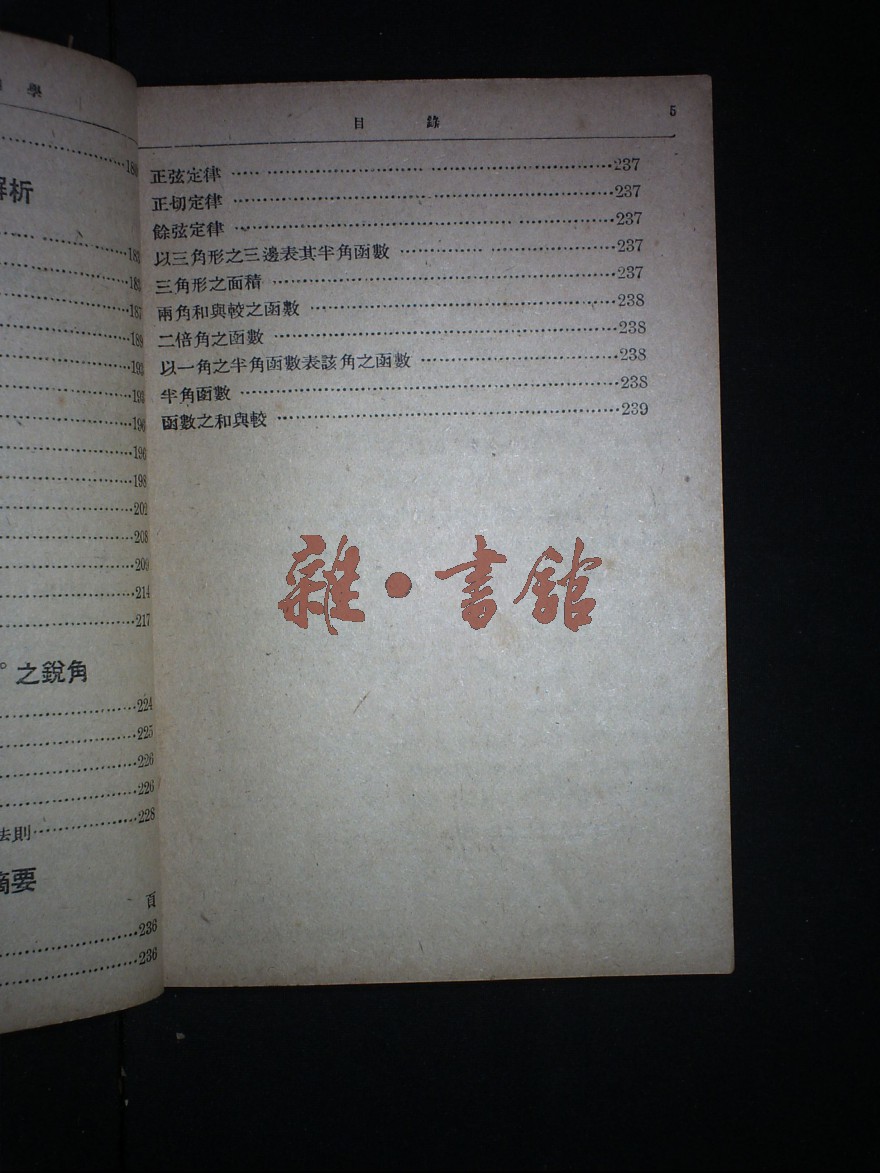 學
180
解析
187
189
193
193
196
196
198
202
208
209
214
217
° 之銳角
224
225
226
226
法則 228
摘要
頁
236
236
目 錄 5
正弦定律 237
正切定律 237
餘弦定律 237
以三角形之三邊表其半角函數 237
三角形之面積 237
兩角和與較之函數 238
二倍角之函數 238
以一角之半角函數表該角之函數 238
半角函數 238
函數之和與較 239
雜·書館